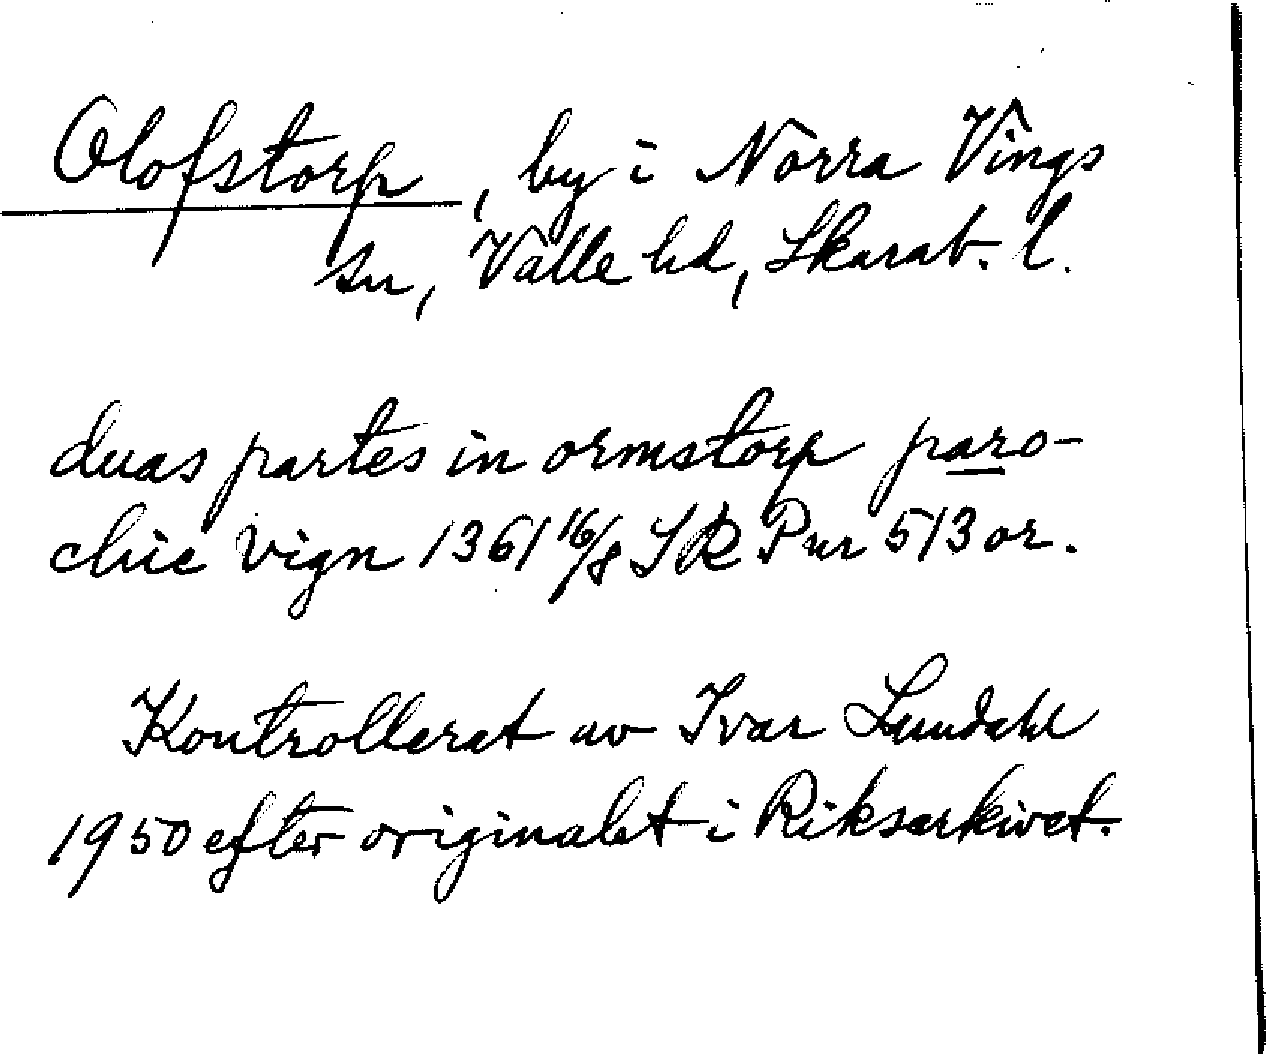 Olofstorp, by i Norra Vings
sn, Valle hd, Skarab. l.
duas partes in ormstorp paro-
chie vign 1361 16/8 SR Pur 513 or.
Kontrollerat av Ivar Lundahl
1950 efter originalet i Riksarkivet.